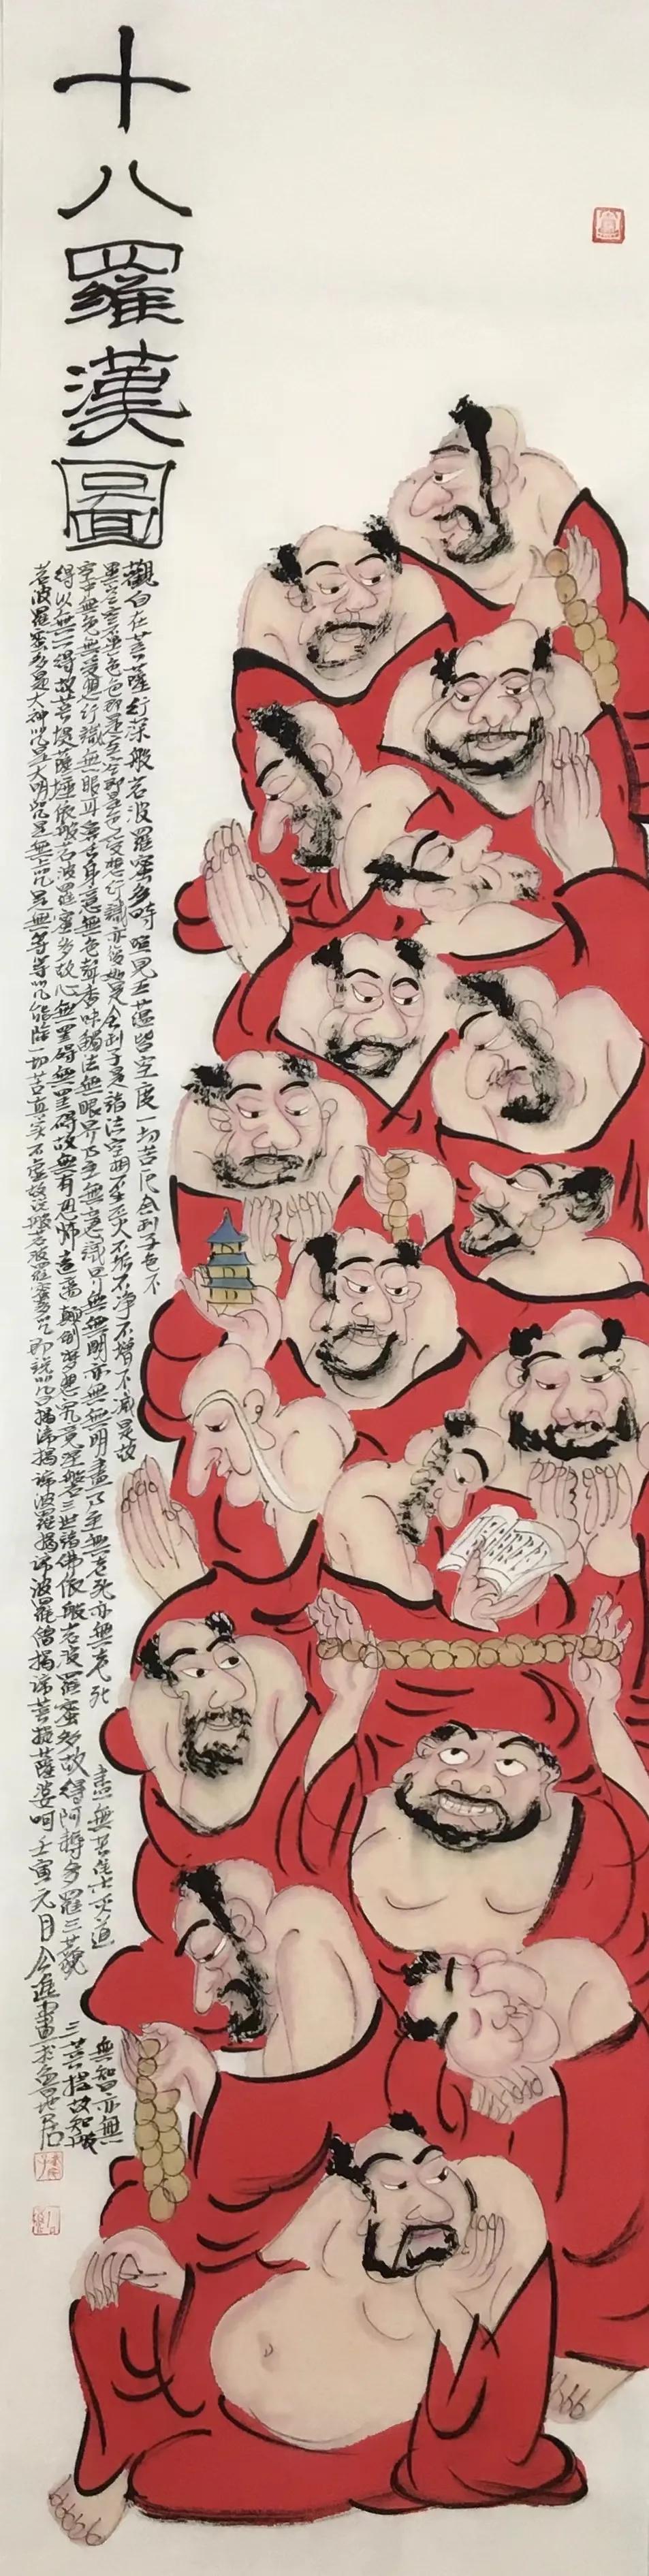 十八羅漢圖
觀自在菩薩行深般若波羅蜜多時照見五蘊皆空度一切苦厄舍利子色不
異空空不異色色即是空空即是色受想行識亦復如是舍利子是諸法空相不生不滅不垢不淨不增不減是故
空中無色無受想行識無眼耳鼻舌身意無色聲香味觸法無眼界乃至無意識界無無明亦無無明盡乃至無老死亦無老死盡無苦集滅道無智亦無
得以無所得故菩提薩埵依般若波羅蜜多故心無罣礙無罣礙故無有恐怖遠離顛倒夢想究竟涅槃三世諸佛依般若波羅蜜多故得阿耨多羅三藐三菩提故知般
若波羅蜜多是大神咒是大明咒是無上咒是無等等咒能除一切苦真實不虛故說般若波羅蜜多咒即說咒曰揭諦揭諦波羅揭諦波羅僧揭諦菩提薩婆呵壬寅元月